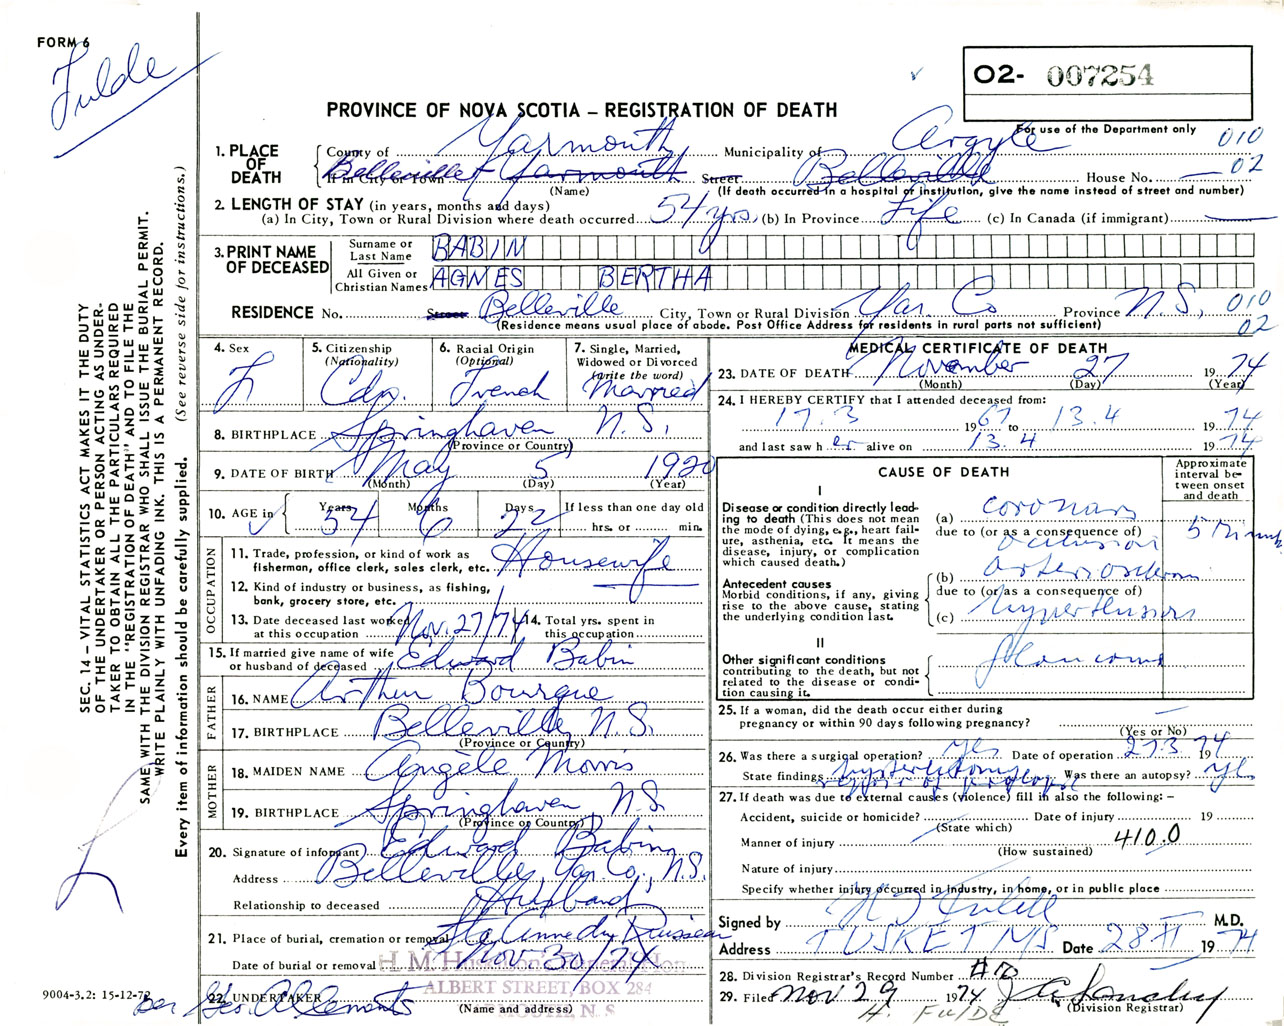 FORM 6
Fulde
O2- 007254
For use of the Department only
PROVINCE OF NOVA SCOTIA – REGISTRATION OF DEATH
1. PLACE OF DEATH
County of Yarmouth Municipality of Argyle 010
If in City or Town Belleville Yarmouth Street Belleville House No. — 02
(Name) (If death occurred in a hospital or institution, give the name instead of street and number)
2. LENGTH OF STAY (in years, months and days)
(a) In City, Town or Rural Division where death occurred 54 yrs. (b) In Province Life (c) In Canada (if immigrant) —
3. PRINT NAME OF DECEASED
Surname or Last Name BABIN
All Given or Christian Names AGNES BERTHA
RESIDENCE No. Street Belleville City, Town or Rural Division Yar. Co Province N.S, 010
(Residence means usual place of abode. Post Office Address for residents in rural parts not sufficient) 02
4. Sex F
5. Citizenship (Nationality) Cdn.
6. Racial Origin (Optional) French
7. Single, Married, Widowed or Divorced (write the word) Married
8. BIRTHPLACE Springhaven N.S.
(Province or Country)
9. DATE OF BIRTH May 5 1920
(Month) (Day) (Year)
10. AGE in Years 54 Months 6 Days 22 If less than one day old
hrs. or min.
OCCUPATION
11. Trade, profession, or kind of work as fisherman, office clerk, sales clerk, etc. Housewife
12. Kind of industry or business, as fishing, bank, grocery store, etc. —
13. Date deceased last worked at this occupation Nov. 27/74
14. Total yrs. spent in this occupation
15. If married give name of wife or husband of deceased Edward Babin
FATHER
16. NAME Arthur Bourque
17. BIRTHPLACE Belleville, N.S.
(Province or Country)
MOTHER
18. MAIDEN NAME Angèle Morris
19. BIRTHPLACE Springhaven, N.S.
(Province or Country)
20. Signature of informant Edward Babin
Address Belleville, Yar. Co., N.S.
Relationship to deceased Husband
21. Place of burial, cremation or removal Ste Anne du Ruisseau
Date of burial or removal Nov. 30/74
ALBERT STREET, BOX 284
YARMOUTH, N.S
22. UNDERTAKER per Geo. A Clements
(Name and address)
MEDICAL CERTIFICATE OF DEATH
23. DATE OF DEATH November 27 1974
(Month) (Day) (Year)
24. I HEREBY CERTIFY that I attended deceased from:
17.3 1967 to 13.4 1974
and last saw her alive on 13.4 1974
CAUSE OF DEATH
Approximate interval between onset and death
I
Disease or condition directly leading to death (This does not mean the mode of dying, e.g., heart failure, asthenia, etc. It means the disease, injury, or complication which caused death.)
(a) coronary
due to (or as a consequence of) occlusion 5 Minutes
Antecedent causes
Morbid conditions, if any, giving rise to the above cause, stating the underlying condition last.
(b) arteriosclerosis
due to (or as a consequence of)
(c) hypertension
II
Other significant conditions contributing to the death, but not related to the disease or condition causing it.
glaucoma
25. If a woman, did the death occur either during pregnancy or within 90 days following pregnancy? —
(Yes or No)
26. Was there a surgical operation? yes Date of operation 27.3 1974
State findings hysterectomy repair of prolapse Was there an autopsy? yes
27. If death was due to external causes (violence) fill in also the following: –
Accident, suicide or homicide? Date of injury 19
(State which)
Manner of injury 410.0
(How sustained)
Nature of injury
Specify whether injury occurred in industry, in home, or in public place
Signed by M.D.
Address TUSKET NS Date 28 II 1974
28. Division Registrar's Record Number #70
29. Filed Nov 29 1974
(Division Registrar)
H. FULDE
SEC. 14 – VITAL STATISTICS ACT MAKES IT THE DUTY
OF THE UNDERTAKER OR PERSON ACTING AS UNDER-
TAKER TO OBTAIN ALL THE PARTICULARS REQUIRED
IN THE "REGISTRATION OF DEATH" AND TO FILE THE
SAME WITH THE DIVISION REGISTRAR WHO SHALL ISSUE THE BURIAL PERMIT.
WRITE PLAINLY WITH UNFADING INK. THIS IS A PERMANENT RECORD.
Every item of information should be carefully supplied. (See reverse side for instructions.)
9004-3.2: 15-12-72